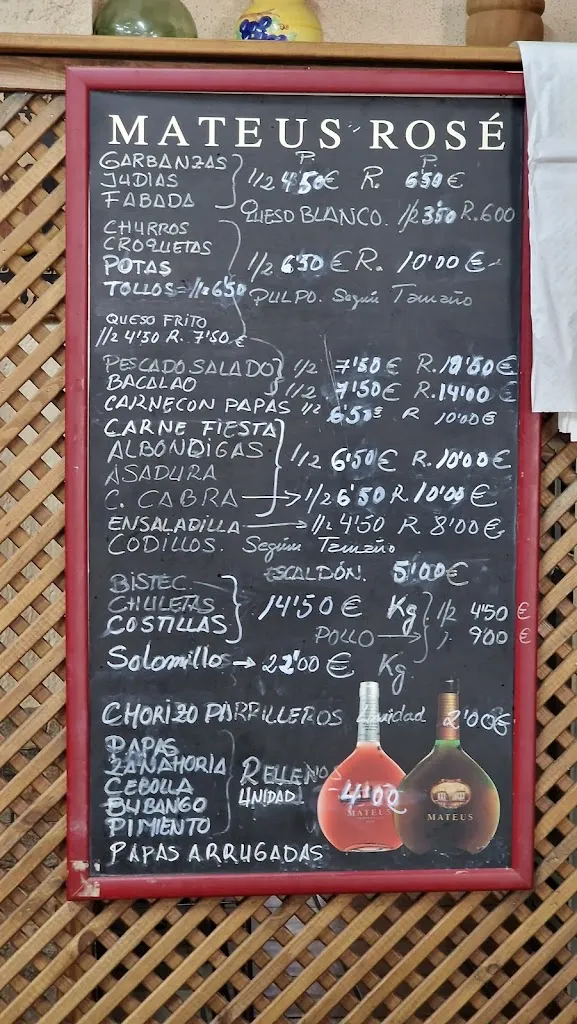 MATEUS ROSÉ
P. P.
GARBANZAS
JUDIAS 1/2 4'50€ R. 6'50€
FABADA
QUESO BLANCO. 1/2 3'50 R. 600
CHURROS
CROQUETAS
POTAS 1/2 6'50 € R. 10'00 €
TOLLOS = 1/2 6'50
PULPO. Según Tamaño
QUESO FRITO
1/2 4'50 R. 7'50 €
PESCADO SALADO 1/2 7'50€ R.
BACALAO 1/2 7'50€ R. 14'00€
CARNE CON PAPAS 1/2 6'50€ R 10'00€
CARNE FIESTA
ALBONDIGAS 1/2 6'50€ R. 10'00€
ASADURA
C. CABRA → 1/2 6'50 R 10'00€
ENSALADILLA → 1/2 4'50 R 8'00€
CODILLOS. Según Tamaño
ESCALDÓN. 5'00€
BISTEC
CHULETAS 14'50€ Kg
COSTILLAS
POLLO → 1/2 4'50€
1. 9'00€
Solomillo → 22'00€ Kg
CHORIZO PARRILLEROS Unidad 2'00€
PAPAS
ZANAHORIA
CEBOLLA
BUBANGO
PIMIENTO
RELLENOS
UNIDAD 4'00€
PAPAS ARRUGADAS
MATEUS
MATEUS